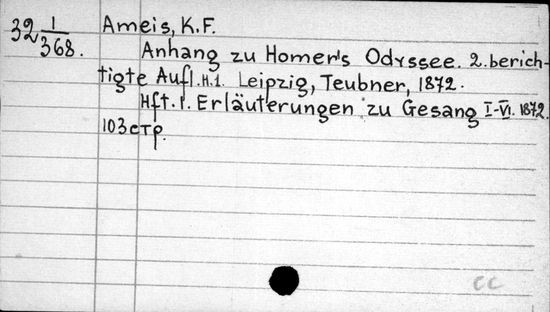 32 1/368. Ameis, K.F.
Anhang zu Homer's Odyssee. 2. berich-
tigte Aufl. H.1. Leipzig, Teubner, 1872.
Hft. 1. Erläuterungen zu Gesang I-VI. 1872.
103 стр.
cc